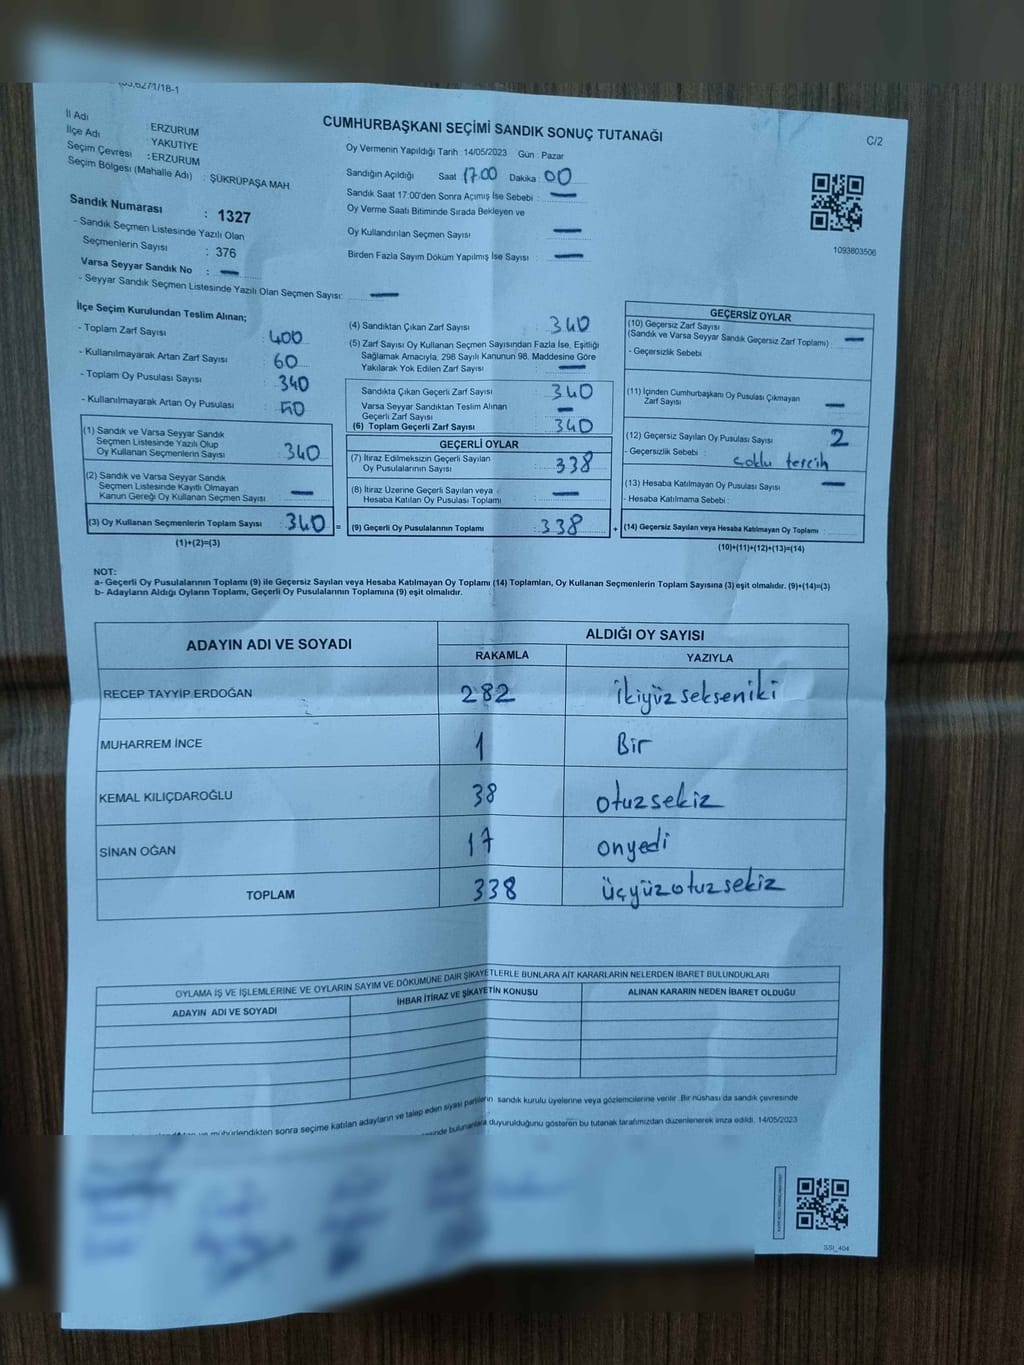 CUMHURBAŞKANI SEÇİMİ SANDIK SONUÇ TUTANAĞI
C/2
İl Adı : ERZURUM
İlçe Adı : YAKUTİYE
Seçim Çevresi : ERZURUM
Seçim Bölgesi (Mahalle Adı) : ŞÜKRÜPAŞA MAH.
Sandık Numarası : 1327
- Sandık Seçmen Listesinde Yazılı Olan
Seçmenlerin Sayısı : 376
Varsa Seyyar Sandık No : —
- Seyyar Sandık Seçmen Listesinde Yazılı Olan Seçmen Sayısı: —
Oy Vermenin Yapıldığı Tarih : 14/05/2023 Gün : Pazar
Sandığın Açıldığı Saat 17.00 Dakika : 00
Sandık Saat 17:00'den Sonra Açımış İse Sebebi : —
Oy Verme Saati Bitiminde Sırada Bekleyen ve
Oy Kullandırılan Seçmen Sayısı —
Birden Fazla Sayım Döküm Yapılmış İse Sayısı : —
1093803506
İlçe Seçim Kurulundan Teslim Alınan;
- Toplam Zarf Sayısı 400
- Kullanılmayarak Artan Zarf Sayısı 60
- Toplam Oy Pusulası Sayısı 340
- Kullanılmayarak Artan Oy Pusulası
(1) Sandık ve Varsa Seyyar Sandık
Seçmen Listesinde Yazılı Olup
Oy Kullanan Seçmenlerin Sayısı : 340
(2) Sandık ve Varsa Seyyar Sandık
Seçmen Listesinde Kayıtlı Olmayan
Kanun Gereği Oy Kullanan Seçmen Sayısı —
(3) Oy Kullanan Seçmenlerin Toplam Sayısı : 340 =
(1)+(2)=(3)
(4) Sandıktan Çıkan Zarf Sayısı : 340
(5) Zarf Sayısı Oy Kullanan Seçmen Sayısından Fazla İse, Eşitliği
Sağlamak Amacıyla, 298 Sayılı Kanunun 98. Maddesine Göre
Yakılarak Yok Edilen Zarf Sayısı : —
Sandıkta Çıkan Geçerli Zarf Sayısı : 340
Varsa Seyyar Sandıktan Teslim Alınan
Geçerli Zarf Sayısı : —
(6) Toplam Geçerli Zarf Sayısı : 340
GEÇERLİ OYLAR
(7) İtiraz Edilmeksizin Geçerli Sayılan
Oy Pusulalarının Sayısı : 338
(8) İtiraz Üzerine Geçerli Sayılan veya
Hesaba Katılan Oy Pusulası Toplamı : —
(9) Geçerli Oy Pusulalarının Toplamı : 338 +
GEÇERSİZ OYLAR
(10) Geçersiz Zarf Sayısı
(Sandık ve Varsa Seyyar Sandık Geçersiz Zarf Toplamı) : —
- Geçersizlik Sebebi :
(11) İçinden Cumhurbaşkanı Oy Pusulası Çıkmayan
Zarf Sayısı : —
(12) Geçersiz Sayılan Oy Pusulası Sayısı : 2
- Geçersizlik Sebebi : çoklu tercih
(13) Hesaba Katılmayan Oy Pusulası Sayısı : —
- Hesaba Katılmama Sebebi :
(14) Geçersiz Sayılan veya Hesaba Katılmayan Oy Toplamı :
(10)+(11)+(12)+(13)=(14)
NOT:
a- Geçerli Oy Pusulalarının Toplamı (9) ile Geçersiz Sayılan veya Hesaba Katılmayan Oy Toplamı (14) Toplamları, Oy Kullanan Seçmenlerin Toplam Sayısına (3) eşit olmalıdır. (9)+(14)=(3)
b- Adayların Aldığı Oyların Toplamı, Geçerli Oy Pusulalarının Toplamına (9) eşit olmalıdır.
ADAYIN ADI VE SOYADI
ALDIĞI OY SAYISI
RAKAMLA YAZIYLA
RECEP TAYYİP ERDOĞAN 282 ikiyüz sekseniki
MUHARREM İNCE 1 Bir
KEMAL KILIÇDAROĞLU 38 otuzsekiz
SİNAN OĞAN 17 onyedi
TOPLAM 338 üçyüzotuzsekiz
OYLAMA İŞ VE İŞLEMLERİNE VE OYLARIN SAYIM VE DÖKÜMÜNE DAİR ŞİKAYETLERLE BUNLARA AİT KARARLARIN NELERDEN İBARET BULUNDUKLARI
ADAYIN ADI VE SOYADI İHBAR İTİRAZ VE ŞİKAYETİN KONUSU ALINAN KARARIN NEDEN İBARET OLDUĞU
mühürlendikten sonra seçime katılan adayların ve talep eden siyasi partilerin sandık kurulu üyelerine veya gözlemcilerine verilir. Bir nüshası da sandık çevresinde
bulunanlara duyurulduğunu gösteren bu tutanak tarafımızdan düzenlenerek imza edildi. 14/05/2023
SSI_404